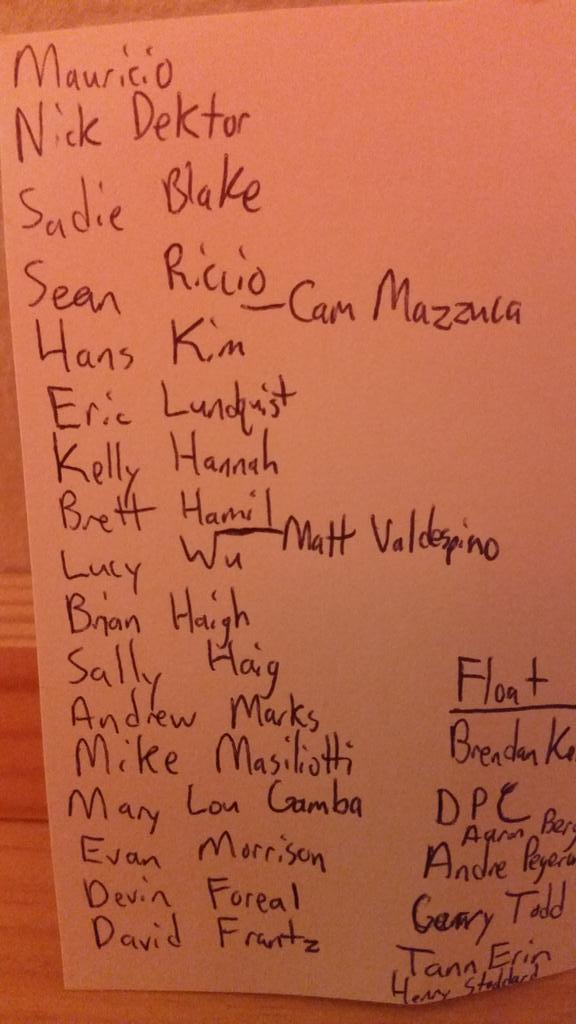 Mauricio
Nick Dektor
Sadie Blake
Sean Riccio
Cam Mazzuca
Hans Kim
Eric Lundquist
Kelly Hannah
Brett Hamil
Matt Valdespino
Lucy Wu
Brian Haigh
Sally Haig
Andrew Marks
Mike Masiliotti
Mary Lou Gamba
Evan Morrison
Devin Foreal
David Frantz
Float
Brendan
DPC
Aaron
Andre
Todd
Tann Erin
Henry Stoddard